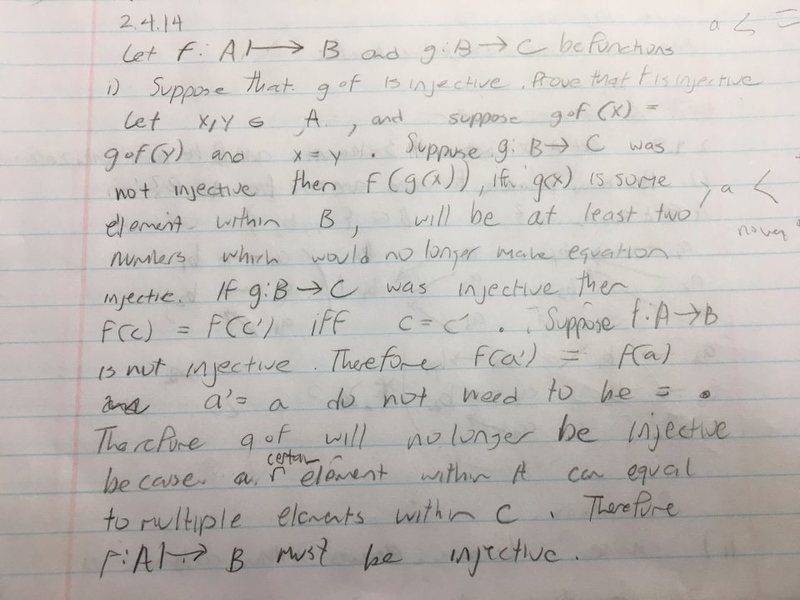 2.4.14
Let f: A ↦ B and g: B → C be functions
i) Suppose that g∘f is injective. Prove that f is injective
Let x, y ∈ A, and suppose g∘f(x) =
g∘f(y) and x = y. Suppose g: B → C was
not injective then f(g(x)), if g(x) is some
element within B, will be at least two
numbers which would no longer make equation
injectie. If g: B → C was injective then
f(c) = f(c') iff c = c'. Suppose f: A → B
is not injective. Therefore f(a') = f(a)
a' = a do not need to be =.
Therefore g∘f will no longer be injective
because a certain element within A can equal
to multiple elements within C. Therefore
f: A ↦ B must be injective.
a <
=
, a <